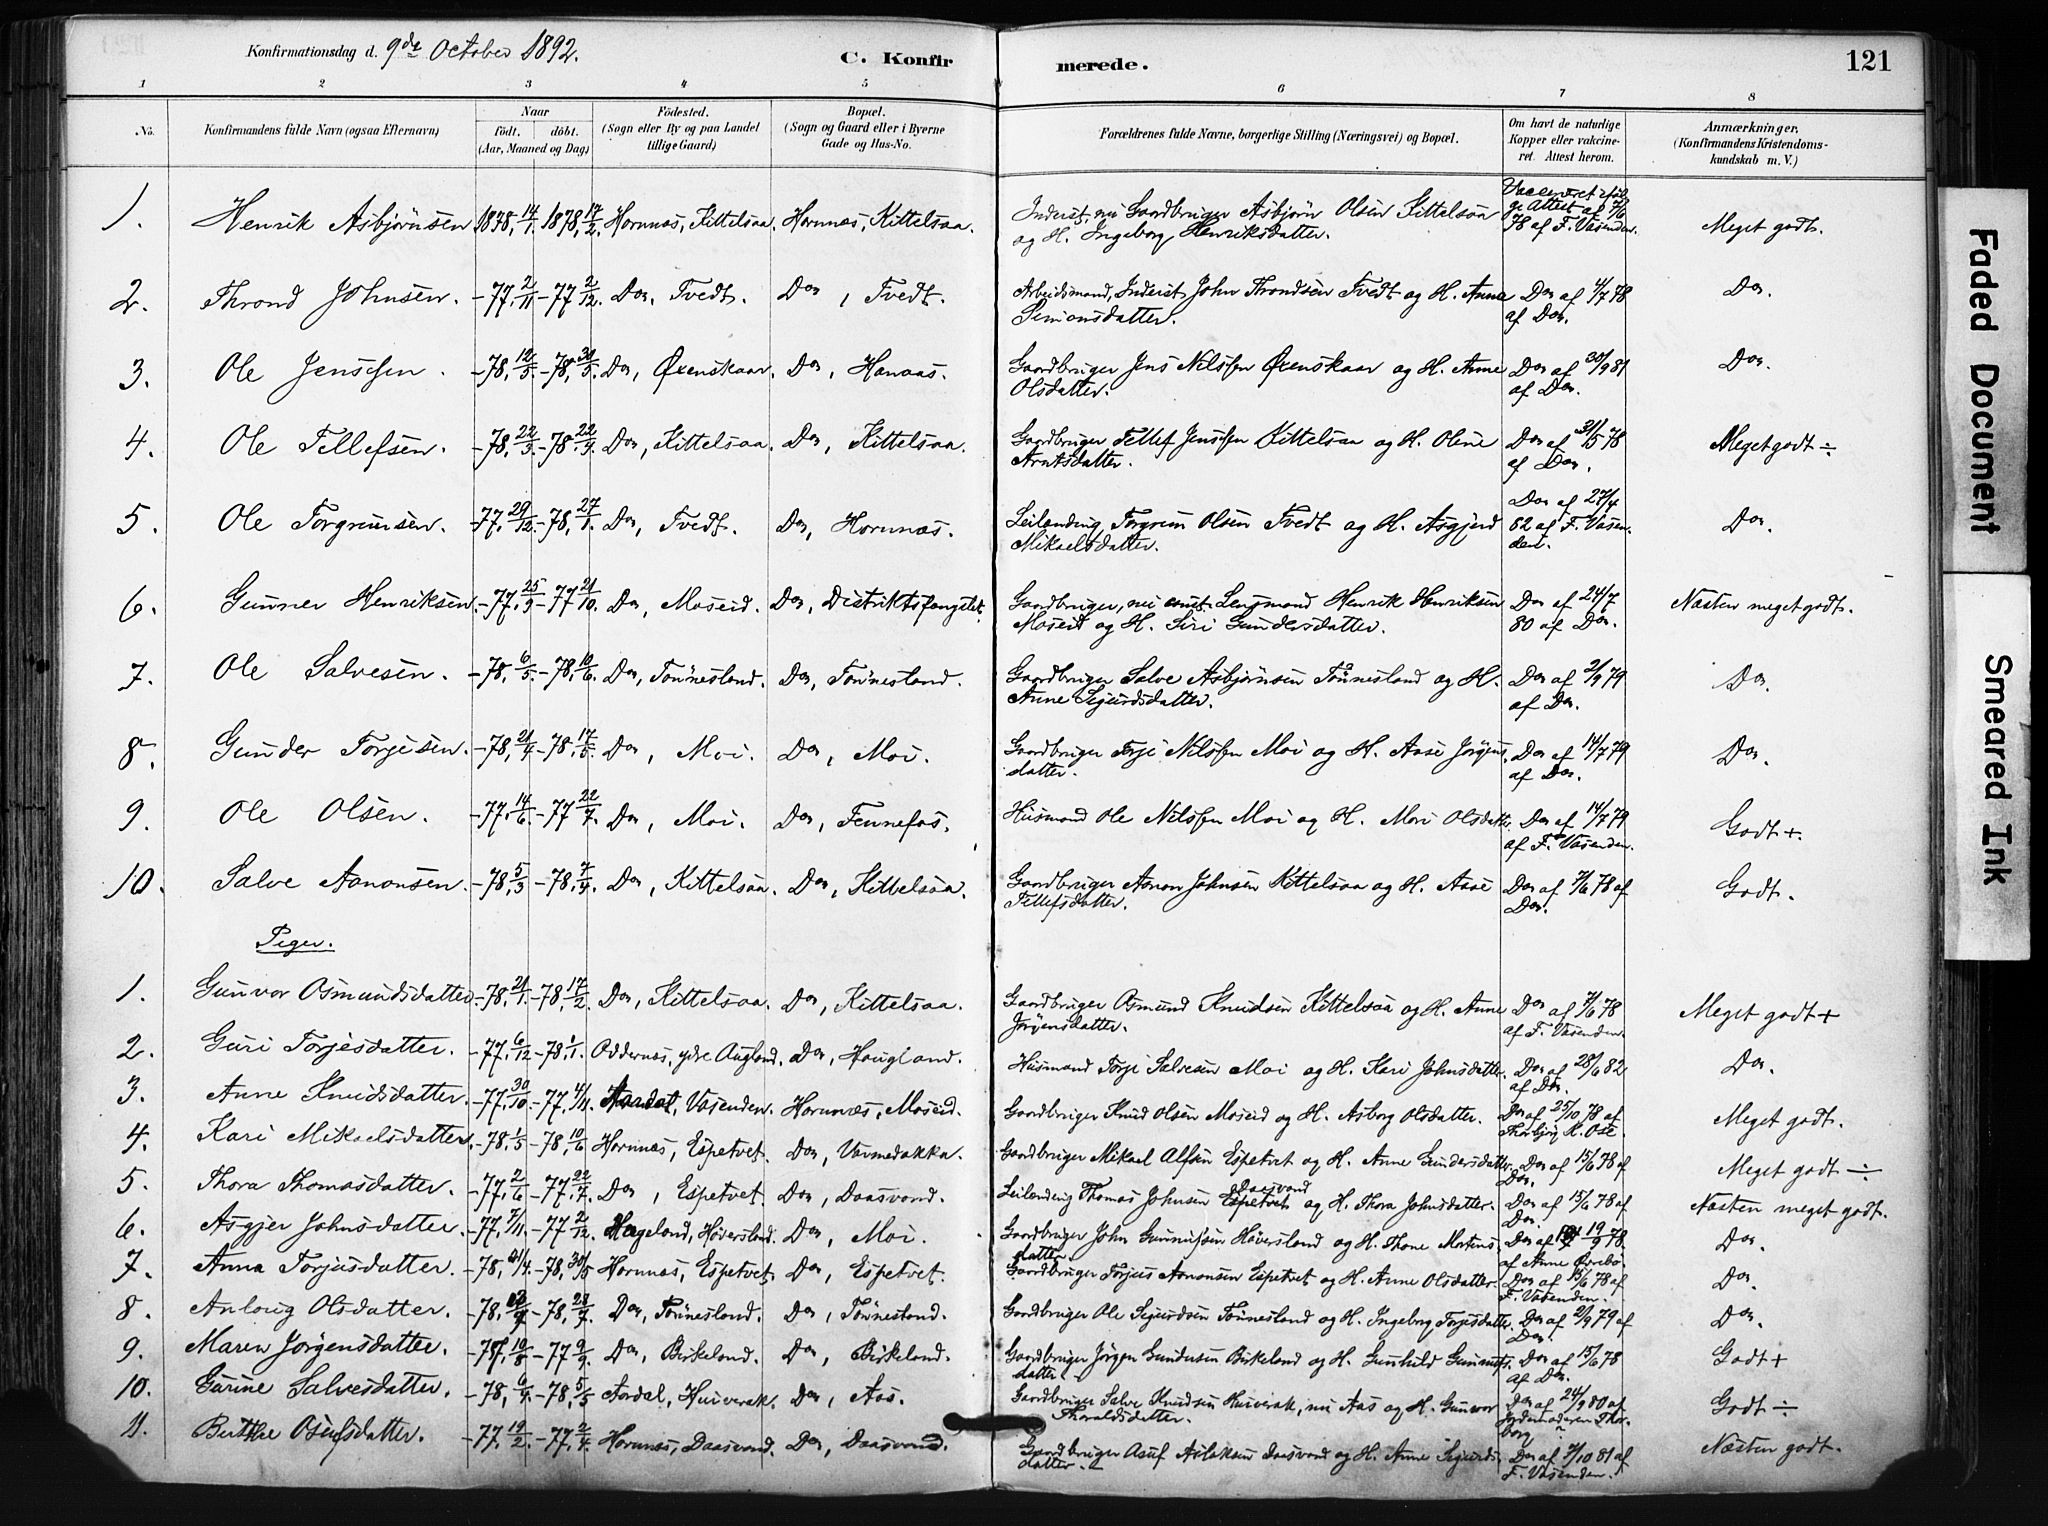 Konfirmationsdag d. 9de October 1892.
C. Konfirmerede.
121
1 2 3 4 5 6 7 8
No.
Konfirmandens fulde Navn (ogsaa Efternavn)
Naar
födt. döbt.
(Aar, Maaned og Dag)
Födested.
(Sogn eller By og paa Landet
tillige Gaard)
Bopæl.
(Sogn og Gaard eller i Byerne
Gade og Hus-No.
Forældrenes fulde Navne, borgerlige Stilling (Næringsvei) og Bopæl.
Om havt de naturlige
Kopper eller vakcine-
ret. Attest herom.
Anmærkninger.
(Konfirmandens Kristendoms-
kundskab m. V.)
1. Henrik Asbjørnsen 1878, 14/1. 1878, 17/2. Hornnæs, Kittelsaa. Hornnæs, Kittelsaa. Inderst, nu Gaardbruger Asbjørn Olsen Kittelsaa
og H. Ingeborg Henriksdatter. 78 af F. Vasenden. Meget godt.
2. Thrond Johnsen. -77, 2/11 -77 2/12. Do, Tvedt. Do, Tvedt. Arbeidsmand, Inderst John Throndsen Tvedt og H. Anne
Simonsdatter. Do af 4/7 78
af Do. Do.
3. Ole Jenssen. -78, 12/5. -78, 30/5. Do, Øxenskaar. Do, Hanaas. Gaardbruger Jens Nilssen Øxenskaar og H. Anne
Olsdatter. Do af 30/9 81
af Do. Do.
4. Ole Tellefsen. -78, 22/3. -78, 22/4. Do, Kittelsaa. Do, Kittelsaa. Gaardbruger Tellef Jenssen Kittelsaa og H. Olene
Arntsdatter. Do af 31/5 78
af Do. Meget godt ÷
5. Ole Torgrimsen. -77, 29/12. -78, 27/1. Do, Tvedt. Do, Hornnæs. Leilænding Torgrim Olsen Tvedt og H. Asgjerd
Mikaelsdatter. Do af 27/4
82 af F. Vasen-
den. Do.
6. Gunner Henriksen. -77, 25/9. -77 21/10. Do, Moseid. Do, Distriktsfængslet. Gaardbruger, nu const. Lensmand Henrik Henriksen
Moseid og H. Siri Gundersdatter. Do af 24/7
80 af Do. Næsten meget godt.
7. Ole Salvesen. -78, 6/5. -78, 10/6. Do, Tønnesland. Do, Tønnesland. Gaardbruger Salve Asbjørnsen Tønnesland og H.
Anne Sigurdsdatter. Do af 2/9 79
af Do. Do.
8. Gunder Torjesen. -78, 21/4. -78, 17/5. Do, Moi. Do, Moi. Gaardbruger Torje Nilssen Moi og H. Aase Jørgens-
datter. Do af 14/7 79
af Do. Do.
9. Ole Olsen. -77, 14/6. -77 22/7. Do, Moi. Do, Fennefos. Husmand Ole Nilssen Moi og H. Mari Olsdatter. Do af 14/7 79
af F. Vasenden. Godt +.
10. Salve Aanonsen. -78, 5/3 -78, 7/4. Do, Kittelsaa. Do, Kittelsaa. Gaardbruger Aanon Johnsen Kittelsaa og H. Aase
Tellefsdatter. Do af 7/6 78 af
Do. Godt.
Piger.
1. Gunvor Osmundsdatter. -78, 21/1. -78, 17/2. Do, Kittelsaa. Do, Kittelsaa. Gaardbruger Osmund Knudsen Kittelsaa og H. Anne
Jørgensdatter. Do af 7/6 78
af F. Vasenden. Meget godt +
2. Guri Torjesdatter. -77, 6/12 -78, 1/1. Oddernæs, ydre Augland. Do, Haugland. Husmand Torje Salvesen Moi og H. Kari Johnsdatter. Do af 28/6 82
af Do. Do.
3. Anne Knudsdatter. -77, 30/10. -77, 4/11. Aardal, Vasenden. Hornnæs, Moseid. Gaardbruger Knud Olsen Moseid og H. Asborg Olsdatter. Do af 25/10 78 af
Thorbjørg K. Ose. Meget godt.
4. Kari Mikaelsdatter. -78, 1/5 -78, 10/6 Hornnæs, Espetvet. Do, Varmedakka. Gaardbruger Mikael Alfsen Espetvet og H. Anne Gundersdatter. Do af 15/6 78 af
Do. Meget godt ÷
5. Thora Thomasdatter. -77, 2/6 -77, 22/7. Do, Espetvet. Do, Daasvand. Leilænding Thomas Johnsen Espetvet Daasvand og H. Thora Johnsdatter. Do af 15/6 78 af
Do. Næsten meget godt.
6. Asgjer Johnsdatter. -77, 7/11. -77 2/12. Hægeland, Høversland. Do, Moi. Gaardbruger John Gunnufsen Høversland og H. Thone Mortens-
datter. Do af 19/9 78.
af Anne Øvrebø. Do.
7. Anna Torjusdatter. -78, 21/4. -78, 30/5 Hornnæs, Espetvet. Do, Espetvet. Gaardbruger Torjus Aanonsen Espetvet og H. Anne Olsdatter. Do af 15/6 78 af
F. Vasenden. Do.
8. Anlaug Olsdatter. -78, -78, 28/7. Do, Tønnesland. Do, Tønnesland. Gaardbruger Ole Sigurdsen Tønnesland og H. Ingeborg Torjesdatter. Do af 2/9 79 af
Do. Do.
9. Maren Jørgensdatter. -77, 10/8 -77 9/9. Do, Birkeland. Do, Birkeland. Gaardbruger Jørgen Gundersen Birkeland og H. Gunhild Gunnufs-
datter. Do af 15/6 78
af Do. Godt +
10. Gurine Salvesdatter. -78, 6/4. -78, 5/5 Aardal, Huiverak. Do, Aas. Gaardbruger Salve Knudsen Huiverak, nu Aas og H. Gunvor
Thoraldsdatter. Do af 24/9 80 af
Jordemoderen Thor-
borg ? Godt ÷
11. Berthe Osufsdatter. -77, 19/2. -77, 2/4. Hornnæs, Daasvand. Do, Daasvand. Gaardbruger Asuf Aslaksen Daasvand og H. Anne Sigurds-
datter. Do af 7/10 81 af
F. Vasenden. Næsten godt.
Faded Document
Smeared Ink